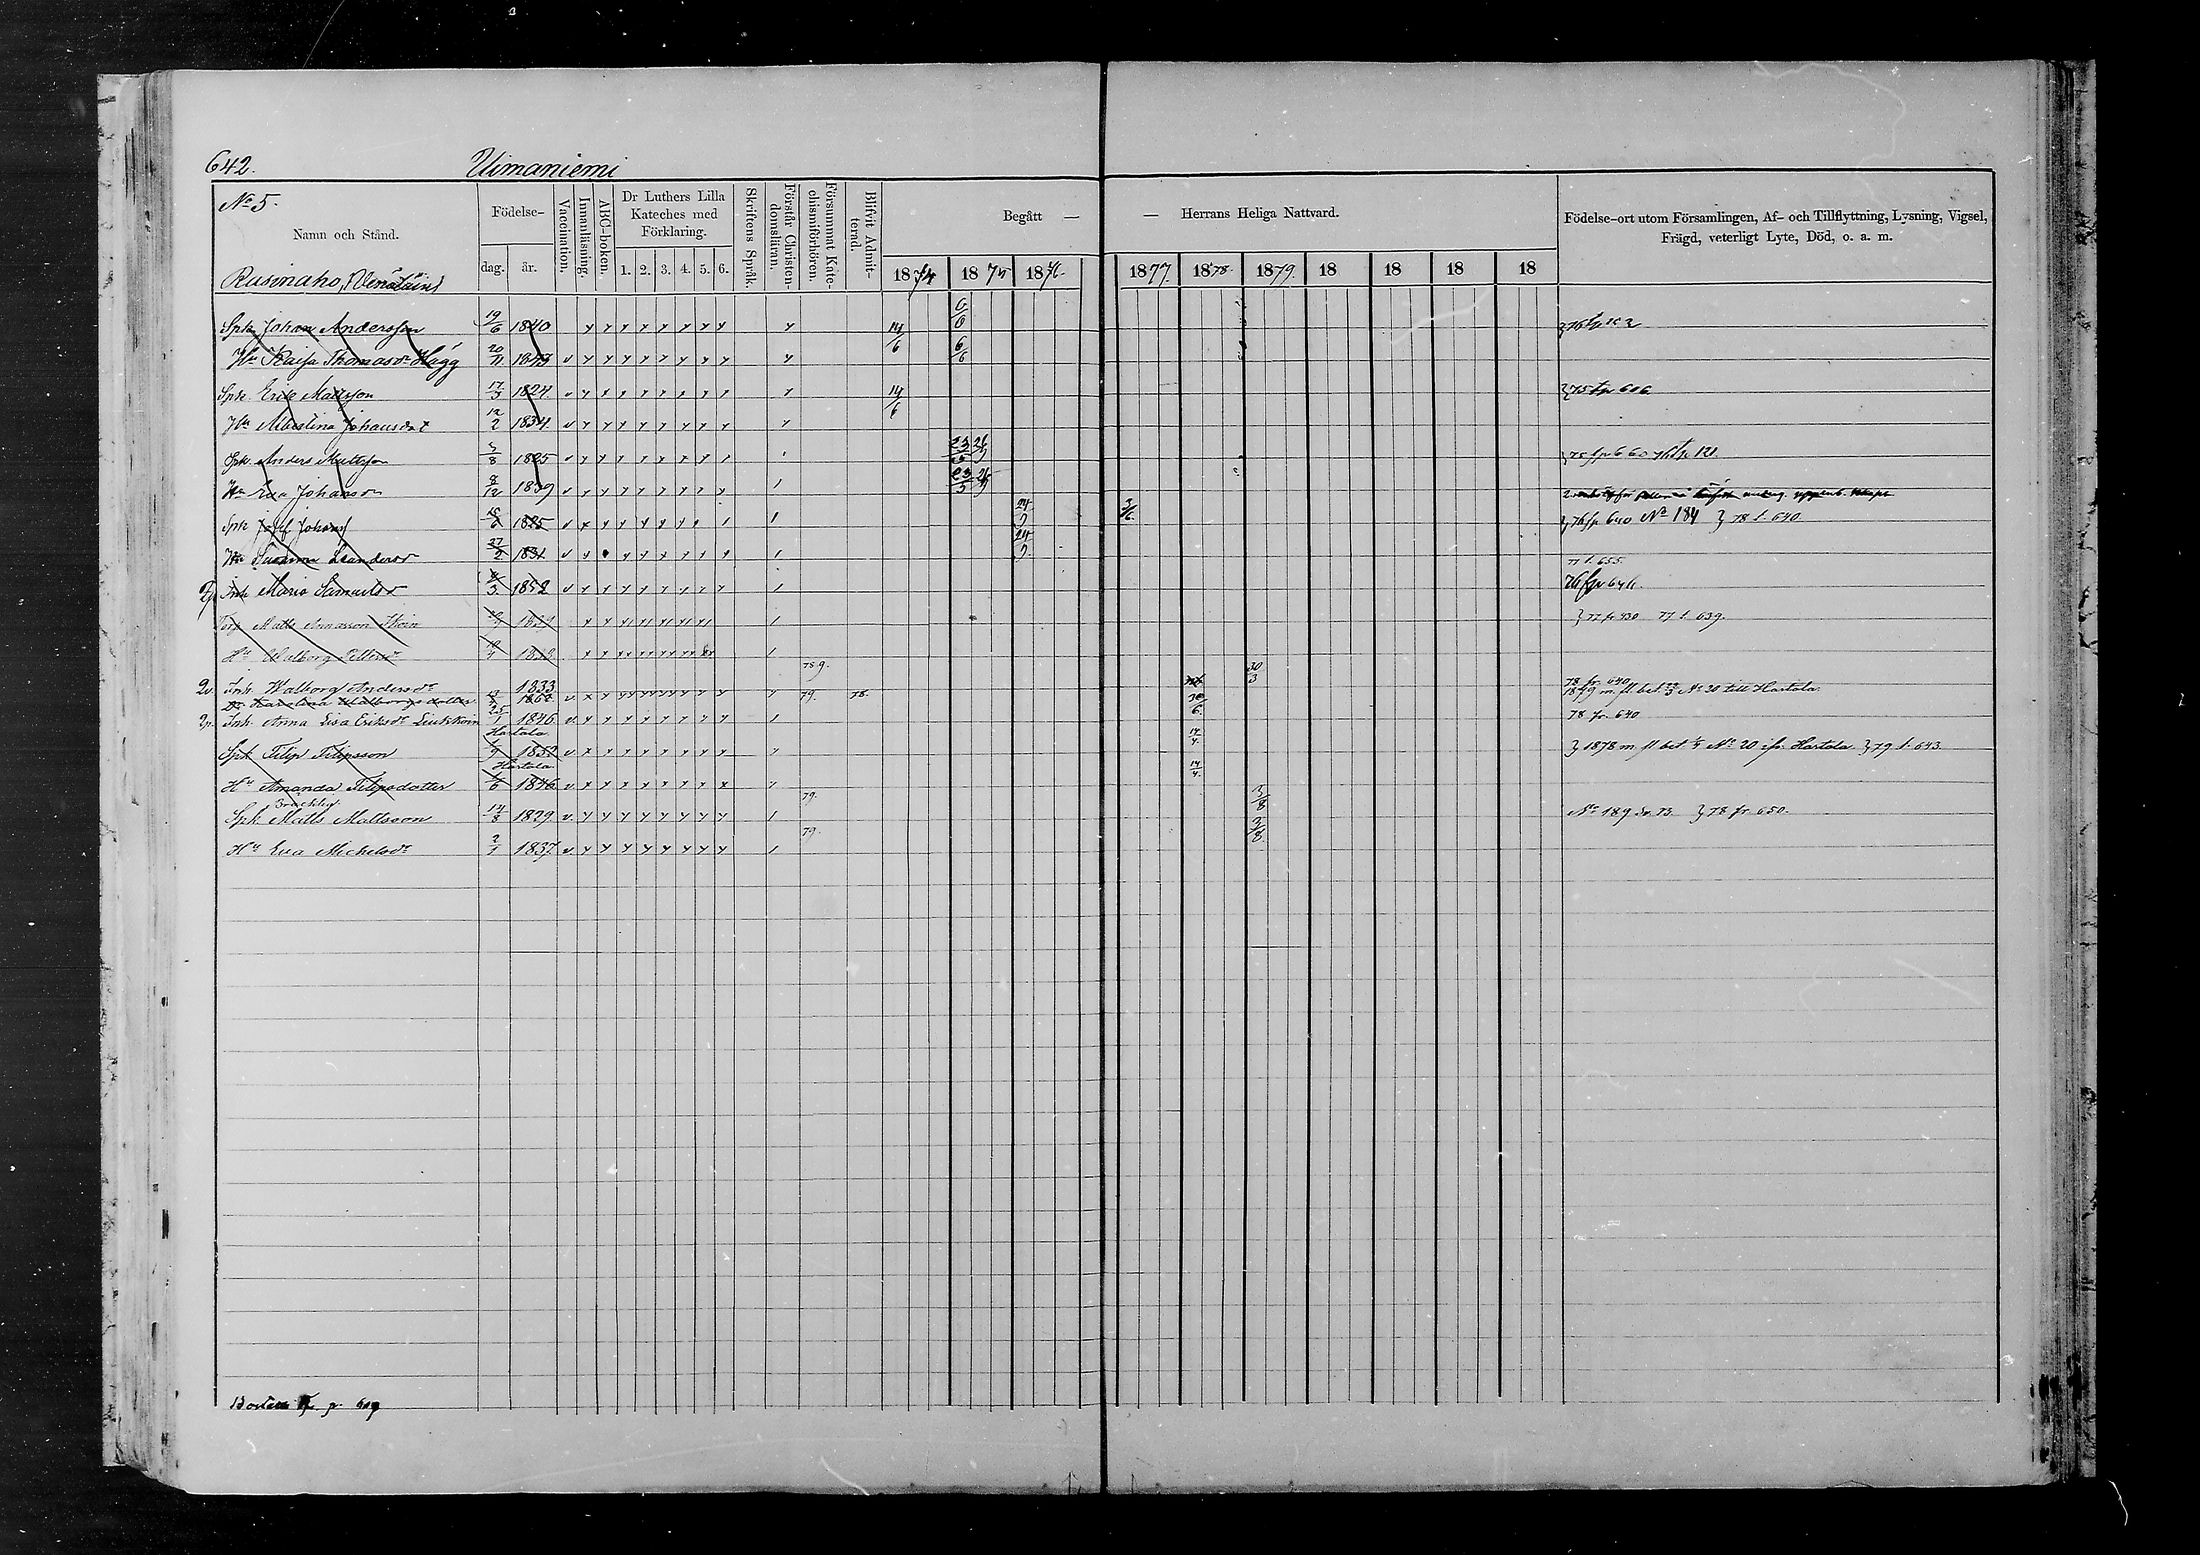 642. Uimaniemi
No 5.
Namn och Stånd.
Födelse-
dag. år.
Vaccination.
Innanläsning.
ABC-boken.
Dr Luthers Lilla Kateches med Förklaring.
1. 2. 3. 4. 5. 6.
Skriftens Språk.
Förstår Christendomsläran.
Försummat Katechismiförhören.
Blifvit Admitterad.
Begått — — Herrans Heliga Nattvard.
1874 1875 1876. 1877. 1878. 1879. 18 18 18 18
Födelse-ort utom Församlingen, Af- och Tillflyttning, Lysning, Vigsel,
Frägd, veterligt Lyte, Död, o. a. m.
Rusinaho,
Spk Johan Andersson 19/6 1840 14/6 6/6
Hu Kaisa Thomasdr Hägg 20/11 1843 6/6
Spk. Erik Mattsson 17/3 1824 14/6 } 75 fp 606
Hu Maria Johansdot 12/2 1834
Spk. Anders Mattsson 5/8 1825 23/5 26/9
Hu Eva Johansdr 8/12 1839 23/5 26/9
Spk Josef Johans 1825 24/9 3/6 } 76 fp 640 No 184 } 78 t. 640
Hu Susanna 27/2 1831 24/9
77 t. 655.
Maria Samuelsdr 1852 76 fp 646.
Torp Matts 1829 } 77 fr 430 77 t. 639.
Hu Walborg Pettersdr
Inh. Walborg Andersdr 1833 78 9. 30/3 78 fr. 640
Dr. Karolina Walborgsdotter 1862 79. 78. 1879 m. fl. bet. No 30 till Hartola.
Inh. Anna Lisa Eriksdr 25/1 1846. 30/6. 78 fr. 640
Hartola.
Spk Filip Filipsson 1852 14/4. } 1878 m. fl bet No 20 ifr. Hartola } 79 t. 643
Hartola.
Hu Amanda Filipsdotter 1/6 1846 14/4.
Spk Matts Mattsson 14/8 1829 79. 3/8 No 189 } 78 fr 650.
Hu Eva Michelsdr 2/1 1837 79. 3/8.
p. 609